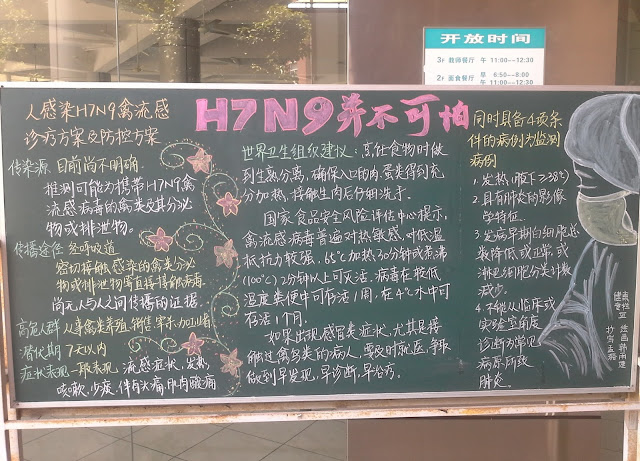 开放时间
3F 教师餐厅 午 11:00--12:30
2F 面食餐厅 早 6:50--8:00
午 11:00--12:30
H7N9并不可怕
人感染H7N9禽流感
诊疗方案及防控方案
传染源 目前尚不明确,
推测可能为携带H7N9禽
流感病毒的禽类及其分泌
物或排泄物。
传播途径 经呼吸道
密切接触感染的禽类分泌
物或排泄物或直接接触病毒
尚无人与人之间传播的证据。
高危人群 从事禽类养殖、销售、宰杀、加工业者
潜伏期 7天以内
症状表现 一般表现 流感症状,发热,
咳嗽,少痰,伴有头痛,肌肉酸痛
世界卫生组织建议:烹饪食物时做
到生熟分离,确保入口的肉、蛋类得到充
分加热,接触生肉后仔细洗手。
国家食品安风险评估中心提示,
禽流感病毒普遍对热敏感,对低温
抵抗力较强,65℃加热30分钟或煮沸
(100℃)2分钟以上可灭活。病毒在较低
温度粪便中可存活1周,在4℃水中可
存活1个月。
如果出现感冒类症状,尤其是接
触过禽鸟类的病人,要及时就医,争取
做到早发现,早诊断,早治疗。
同时具备4项条
件的病例为监测
病例
1.发热(腋下≥38℃)
2.具有肺炎的影像
学特征.
3.发病早期白细胞总
数降低或正常,或
淋巴细胞分类计数
减少.
4.不能从临床或
实验室角度
诊断为常见
病原所致
肺炎.